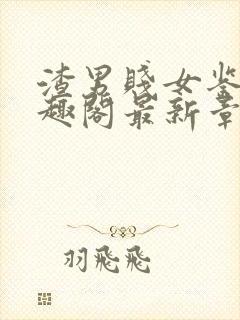 渣男賤女鉴
趣阁最新章
羽飛飛